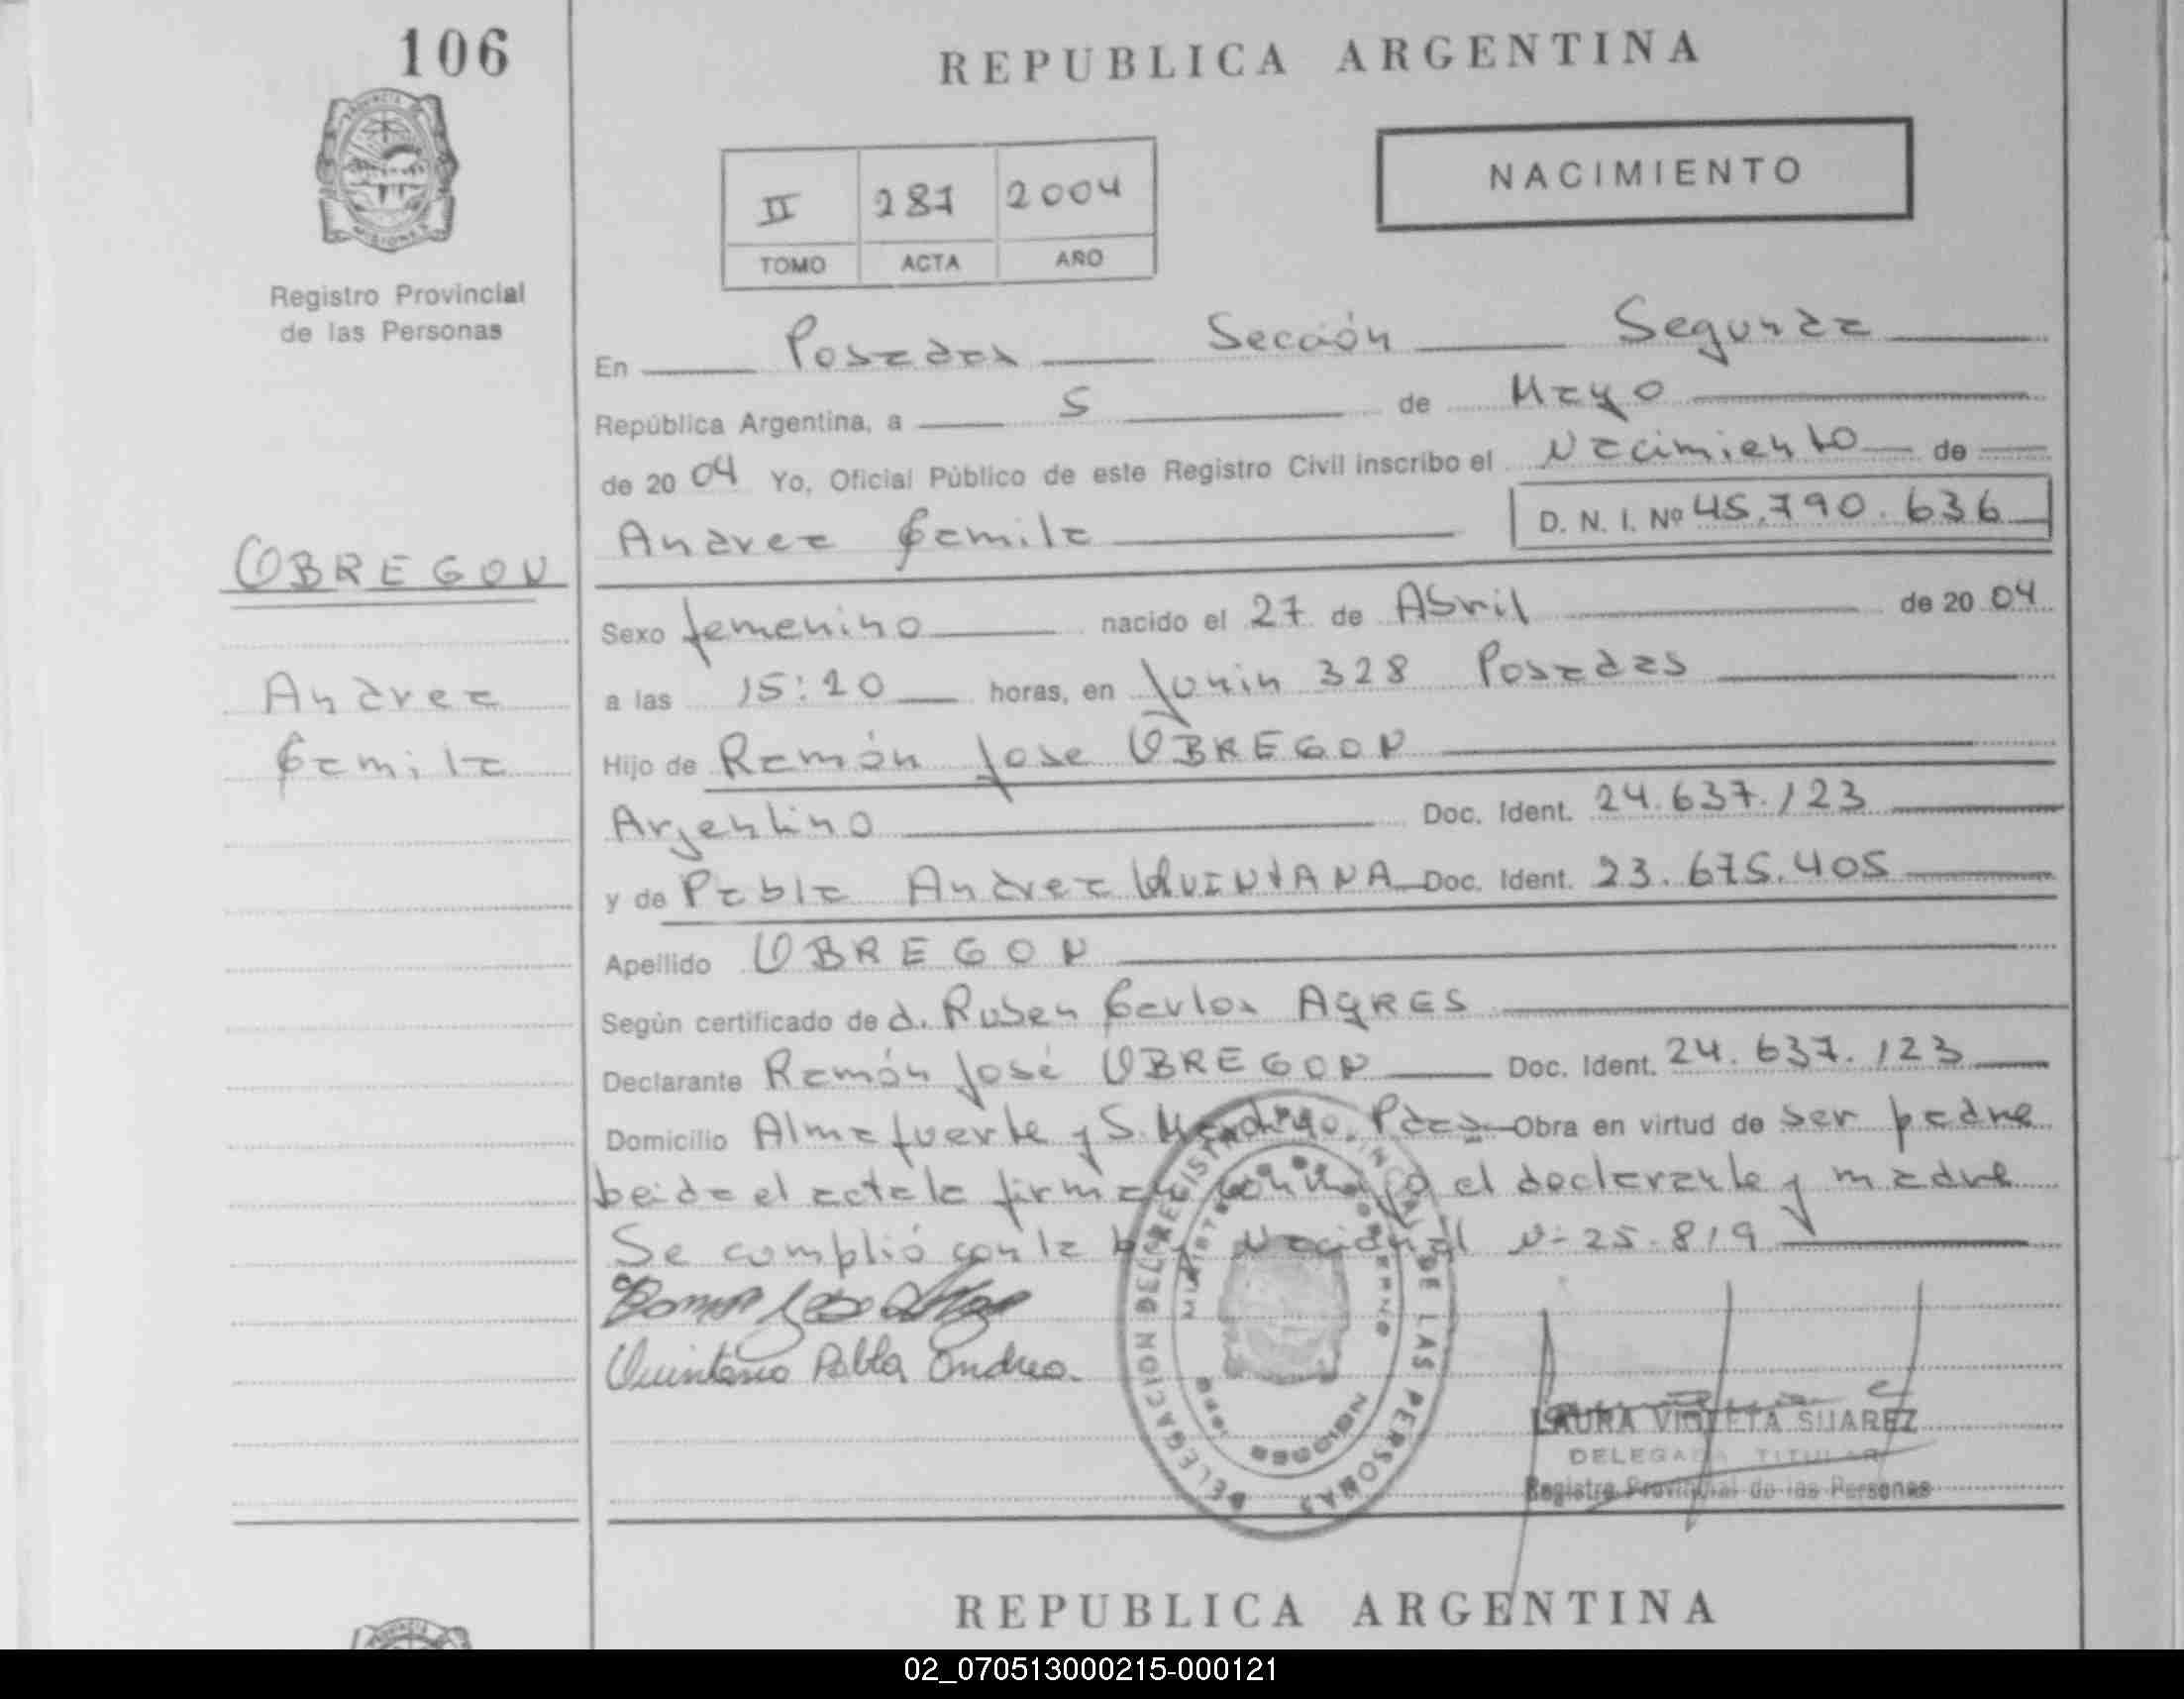 106
REPUBLICA ARGENTINA
NACIMIENTO
II 281 2004
TOMO ACTA AÑO
PROVINCIA DE
MISIONES
Registro Provincial
de las Personas
En Posadas Sección Segunda
República Argentina, a 5 de Mayo
de 2004 Yo, Oficial Público de este Registro Civil inscribo el Nacimiento de
D. N. I. Nº 45.790.636
Andrea Camila
OBREGON
Andrea
Camila
Sexo femenino nacido el 27 de Abril de 2004
a las 15:20 horas, en Junin 328 Posadas
Hijo de Ramón Jose OBREGON
Argentino Doc. Ident. 24.637.123
y de Pabla Andrea QUINTANA Doc. Ident. 23.675.405
Apellido OBREGON
Según certificado de d. Ruben Carlos AYRES
Declarante Ramón José OBREGON Doc. Ident. 24.637.123
Domicilio Almafuerte y S. Pdas Obra en virtud de ser padre
Leida el acta la firma conmigo el declarante y madre
Se cumplió con la Ley Nacional Nº 25.819
Quintana Pabla Andrea
DELEGACION DEL REGISTRO PROVINCIAL DE LAS PERSONAS
MINISTERIO DE GOBIERNO
MISIONES
LAURA VIOLETA SUAREZ
DELEGADA TITULAR
Registro Provincial de las Personas
REPUBLICA ARGENTINA
02_070513000215-000121